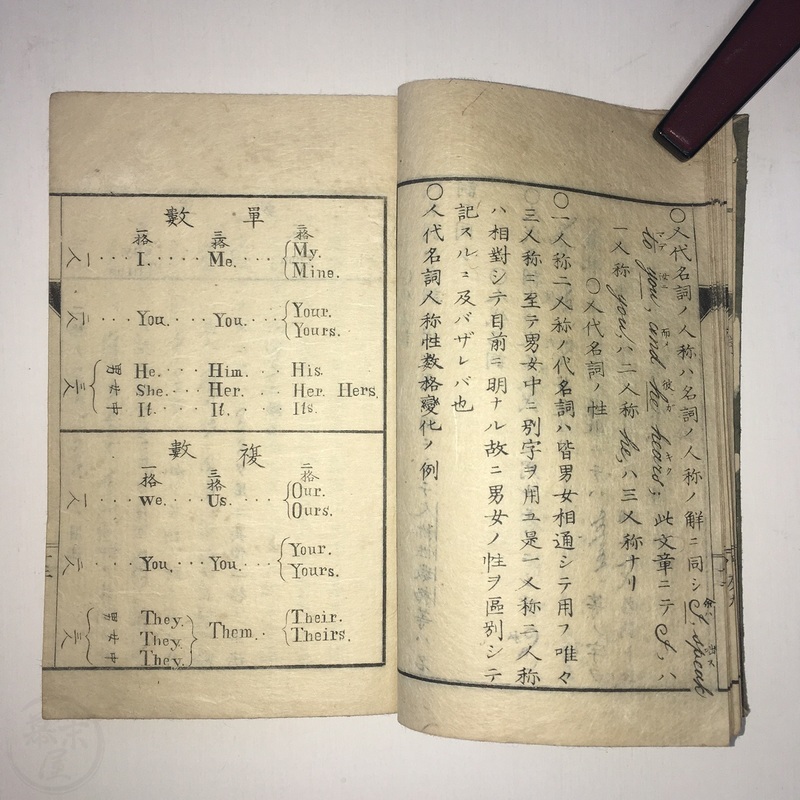 〇人代名詞ノ人称ハ名詞ノ人称ノ解ニ同シ I speak
to you, and he hears; 此文章ニテ I, ハ
一人称 you, ハ二人称 he, ハ三人称ナリ
〇人代名詞ノ性
〇一人称二人称ノ代名詞ハ皆男女相通シテ用フ唯々
三人称ニ至テ男女中ニ別字ヲ用ユ是一人称二人称
ハ相對シテ目前ニ明ナル故ニ男女ノ性ヲ區別シテ
記スルニ及バザレバ也
〇人代名詞人称性数格變化ノ例
單數
一格 三格 二格
一人 I. Me. My. Mine.
二人 You. You. Your. Yours.
三人 男 女 中
He. Him. His.
She. Her. Her. Hers.
It. It. Its.
複數
一格 三格 二格
一人 We. Us. Our. Ours.
二人 You. You. Your. Yours.
三人 男 女 中
They. They. They. Them. Their. Theirs.